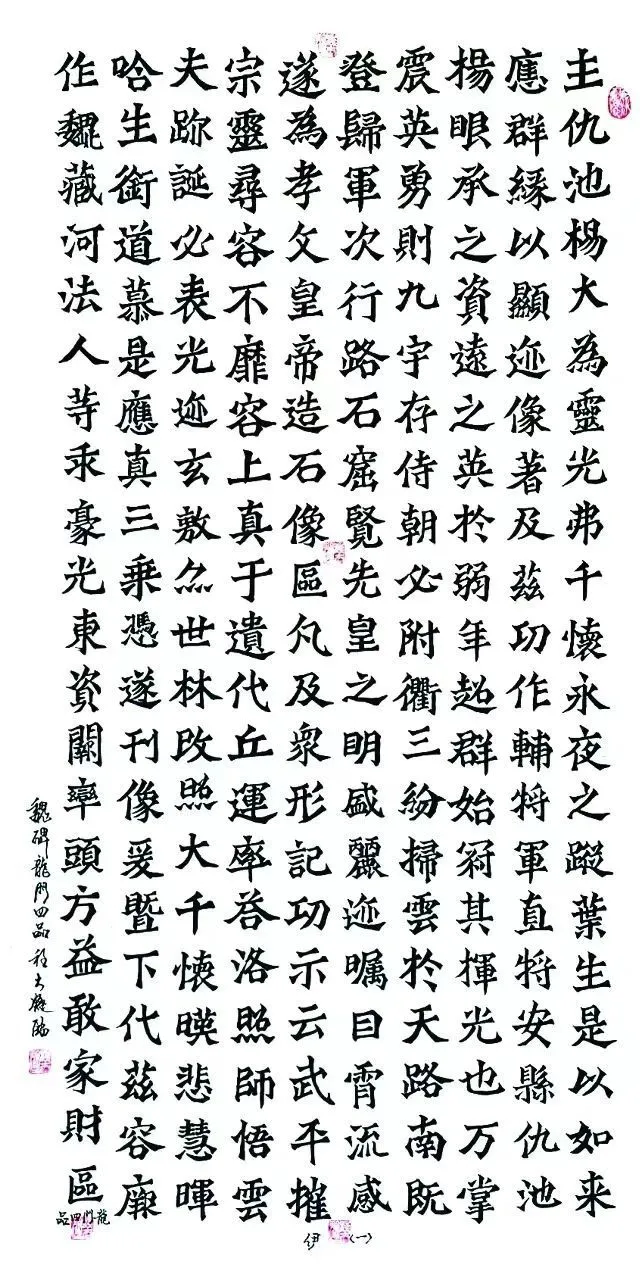 主仇池楊大為靈光弗千懷永夜之蹤葉生是以如来
應群緣以顯迹像著及茲功作輔將軍直將安縣仇池
揚眼承之資遠之英於弱年超群始冠其揮光也万掌
震英勇則九宇存侍朝必附衢三紛掃雲於天路南既
登歸軍次行路石窟覽先皇之明盛麗迹矚目霄流感
遂為孝文皇帝造石像區凡及眾形記功示云武平摧
宗靈尋容不靡容上真于遺代丘運率荅洛照師悟雲
夫跡誕必表光迹玄敷尒世林改照大千懷暎悲慧暉
哈生銜道慕是應真三乗憑遂刊像爰暨下代茲容
作魏藏河法人等豪光東資關率頭方益敢家財區
魏碑龍門四品 程大臨
龍門四品
伊(一)